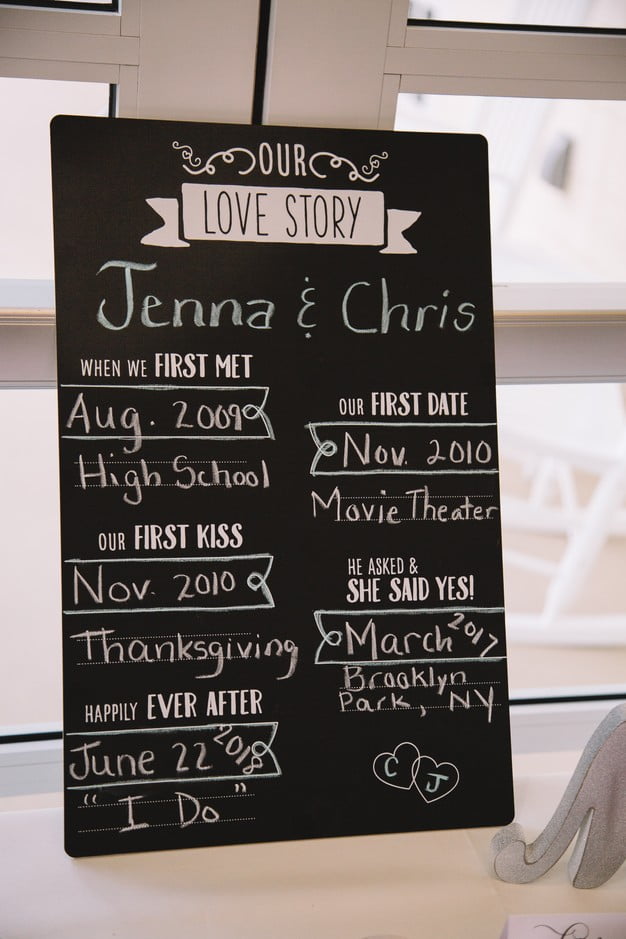 OUR
LOVE STORY
Jenna & Chris
WHEN WE FIRST MET
Aug. 2009
High School
OUR FIRST DATE
Nov. 2010
Movie Theater
OUR FIRST KISS
Nov. 2010
Thanksgiving
HE ASKED &
SHE SAID YES!
March 2017
Brooklyn
Park, NY
HAPPILY EVER AFTER
June 22 2018
"I Do"
C J